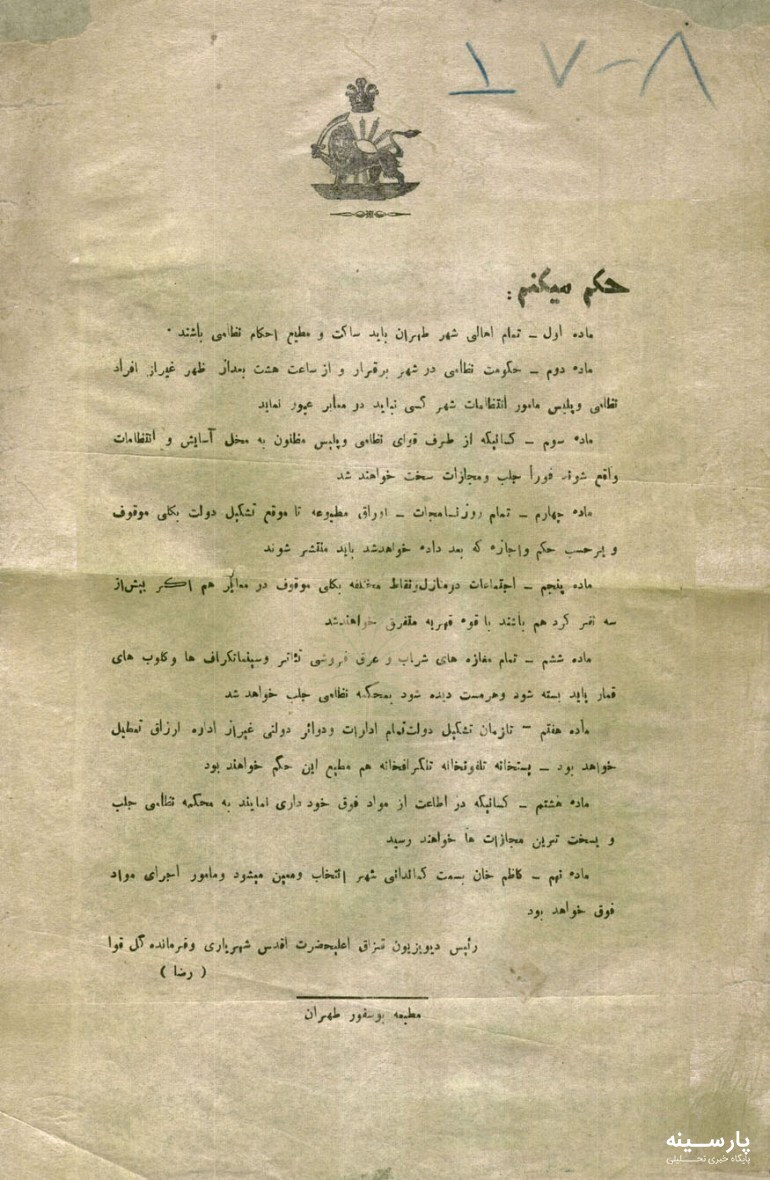 ۸-۷
حکم میکنم:
ماده اول – تمام اهالی شهر طهران باید ساکت و مطیع احکام نظامی باشند .
ماده دوم – حکومت نظامی در شهر برقرار و از ساعت هشت بعداز ظهر غیراز افراد
نظامی وپلیس مامور انتظامات شهر کسی نباید در معابر عبور نماید
ماده سوم – کسانیکه از طرف قوای نظامی وپلیس مظنون به مخل آسایش و انتظامات
واقع شوند فوراً جلب ومجازات سخت خواهند شد
ماده چهارم – تمام روزنامجات – اوراق مطبوعه تا موقع تشکیل دولت بکلی موقوف
و برحسب حکم واجازه که بعد داده خواهدشد باید منتشر شوند
ماده پنجم – اجتماعات درمنازل ونقاط مختلفه بکلی موقوف در معابر هم اگر بیش از
سه نفر گرد هم باشند با قوه قهریه متفرق خواهندشد
ماده ششم – تمام مغازه های شراب و عرق فروشی تئاتر وسینماتگراف ها وکلوب های
قمار باید بسته شود وهرمست دیده شود بمحکمه نظامی جلب خواهد شد
ماده هفتم – تازمان تشکیل دولت تمام ادارات ودوائر دولتی غیراز اداره ارزاق تعطیل
خواهد بود – پستخانه تلفونخانه تلگرافخانه هم مطیع این حکم خواهند بود
ماده هشتم – کسانیکه در اطاعت از مواد فوق خود داری نمایند به محکمه نظامی جلب
و بسخت ترین مجازات ها خواهند رسید
ماده نهم – کاظم خان بسمت کماندانی شهر انتخاب ومعین میشود ومامور اجرای مواد
فوق خواهد بود
رئیس دیویزیون قزاق اعلیحضرت اقدس شهریاری وفرمانده کل قوا
( رضا )
مطبعه بوسفور طهران
پارسینه
پایگاه خبری تحلیلی